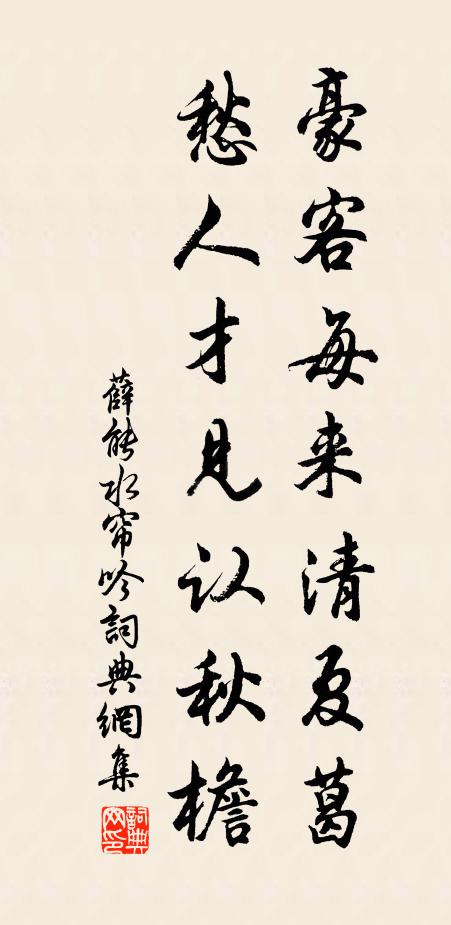 豪客每来清夏葛
愁人才见认秋檐
薛能水帘吟詞典網集
詞典網印